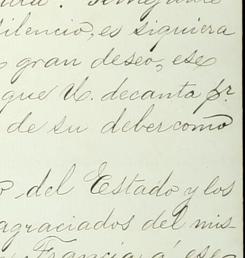 silencio, es siquiera
gran deseo, ese
que U. decanta pr.
de su deber como
del Estado y los
agraciados del mis-
Francia á ese